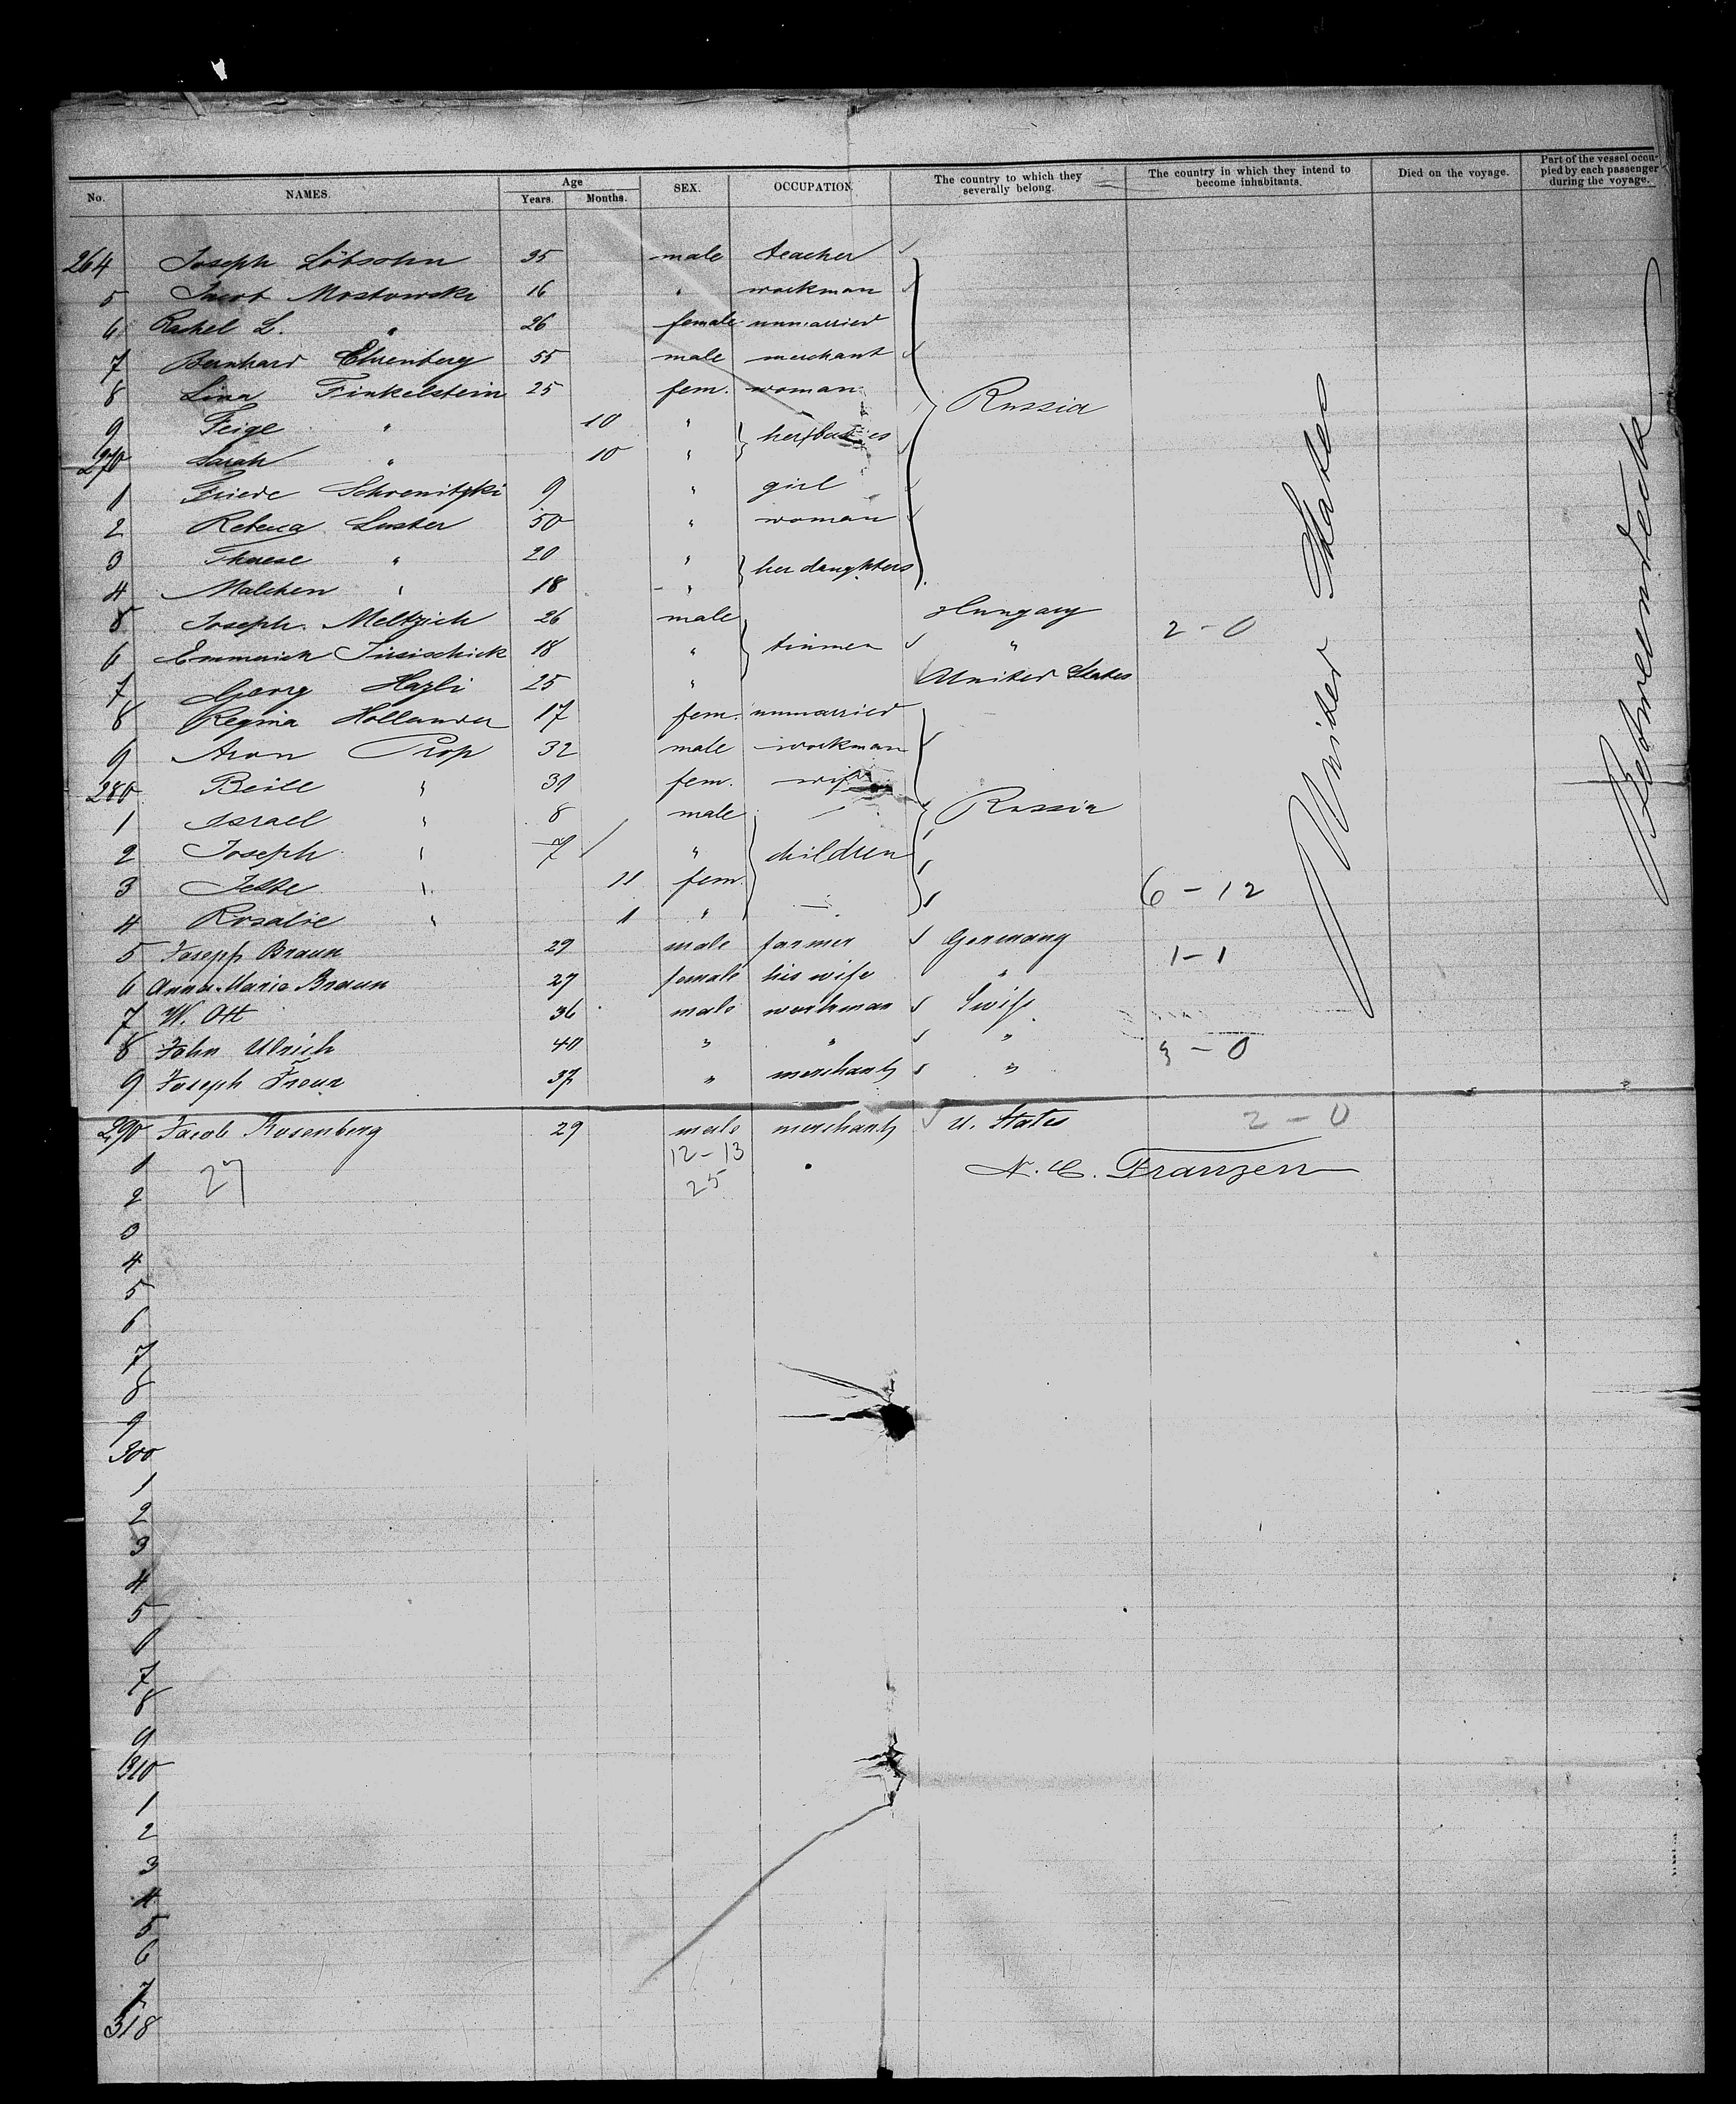 No. NAMES. Age Years. Months. SEX. OCCUPATION. The country to which they severally belong. The country in which they intend to become inhabitants. Died on the voyage. Part of the vessel occupied by each passenger during the voyage.
264 Joseph Löbsohn 35 male teacher
5 Jacob Mostowski 16 " workman
6 Rachel L. " 26 female unmarried
7 Bernhard Ehrenberg 55 male merchant
8 Lina Finkelstein 25 fem. woman Russia
9 Feige " 10 " her babies
270 Sarah " 10 "
1 Friede Schrenitzki 9 " girl
2 Rebecca Luster 50 " woman
3 Therese " 20 " her daughters
4 Malchen " 18 "
5 Joseph Meltzich 26 male Hungary 2-0
6 Emmerich 18 " tinmen "
7 Georg Hazli 25 " United States
8 Regina Hollander 17 fem. unmarried
9 Aron Prop 32 male workman
280 Beile " 31 fem. wife
1 Israel " 8 male Russia
2 Joseph " 7 " children
3 Jette " 11 fem.
6-12
4 Rosalie " 1 "
5 Joseph Braun 29 male farmer Germany 1-1
6 Anna Maria Braun 27 female his wife "
7 W. Ott 36 male workman Swiss
8 John Ulrich 40 " " " 3-0
9 Joseph 37 " merchant "
290 Jacob Rosenberg 29 male merchant U. States 2-0
United States
1 27 12-13 N. C. Franzen
2 25
3
4
5
6
7
8
9
300
1
2
3
4
5
6
7
8
9
310
1
2
3
4
5
6
7
318